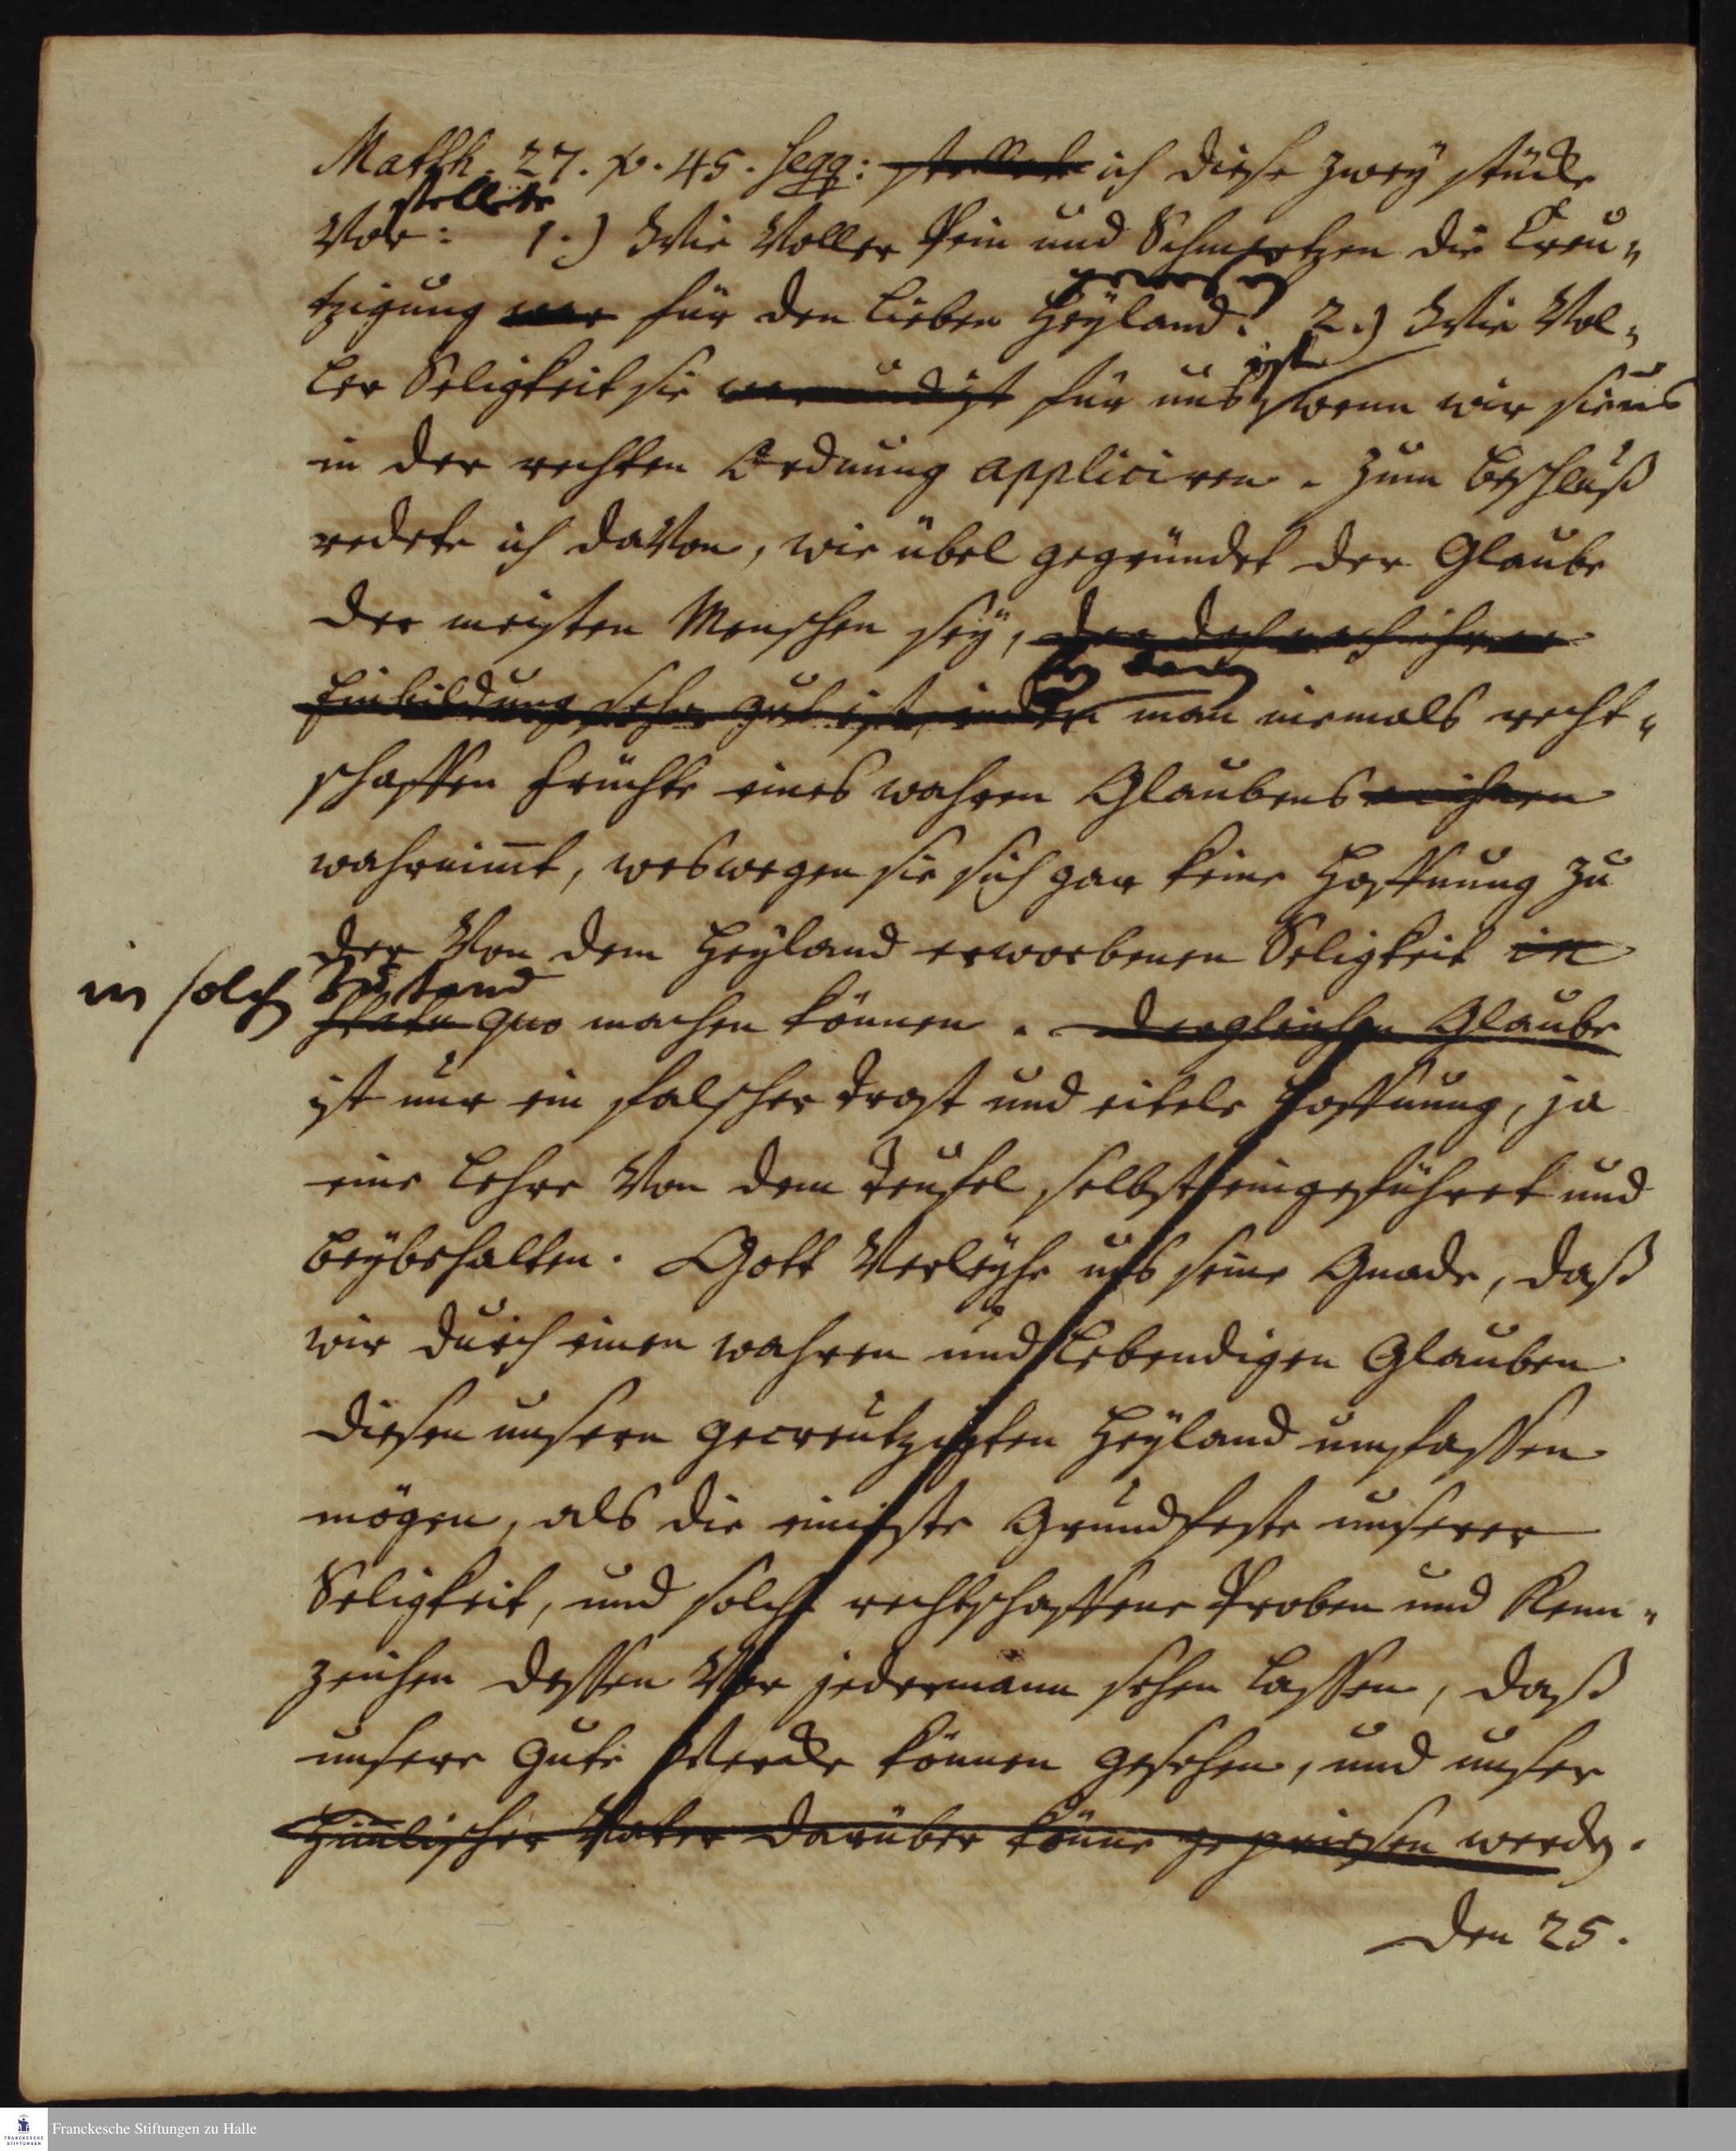 Matth. 27. v. 45. seqq: stellete ich diese zwey stücke
stellete
Vor: 1.) Wie Voller Pein und Schmertzen die Creu„
gewesen
tzigung war für den lieben Heyland. 2.) Wie Vol„
ist
ler Seligkeit sie war und ist für uns, wenn wir sie uns
in der rechten Ordnung appliciren. Zum Beschluß
redete ich davon, wie übel gegründet der Glaube
der meisten Menschen sey, der doch nach ihrer
bey dem
Einbildung sehr gut ist, indem man niemals recht„
schaffen Früchte eines wahren Glaubens
wahrnim̅t, weswegen sie sich gar keine Hoffnung zu
der Von dem Heyland erworbenen Seligkeit in
in solch Zustand
statu quo machen können. Dergleichen Glaube
ist nur ein falscher Trost und eitele Hoffnung, ja
eine Lehre Von dem Teufel selbst eingeführet und
beybehalten. Gott Verleyhe uns seine Gnade, daß
wir durch einen wahren und lebendigen Glauben
diesen unsern gecreutzigten Heyland umfassen
mögen, als die einigste Grundfeste unserer
Seligkeit, und solche rechtschaffene Proben und Kenn„
zeichen dessen Vor jedermann sehen lassen, daß
unsere gute Wercke können gesehen, und unser
Him̅lischer Vater darüber könne gepriesen werden.
Den 25.
Franckesche Stiftungen zu Halle
FRANCKESCHE
STIFTUNGEN